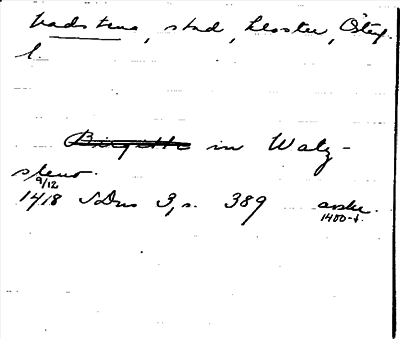 Vadstena, stad, kloster, Östg.
l.
Birgitte in Watz-
steno.
9/12
1418 SDns 3, s. 389 avskr.
1400-t.